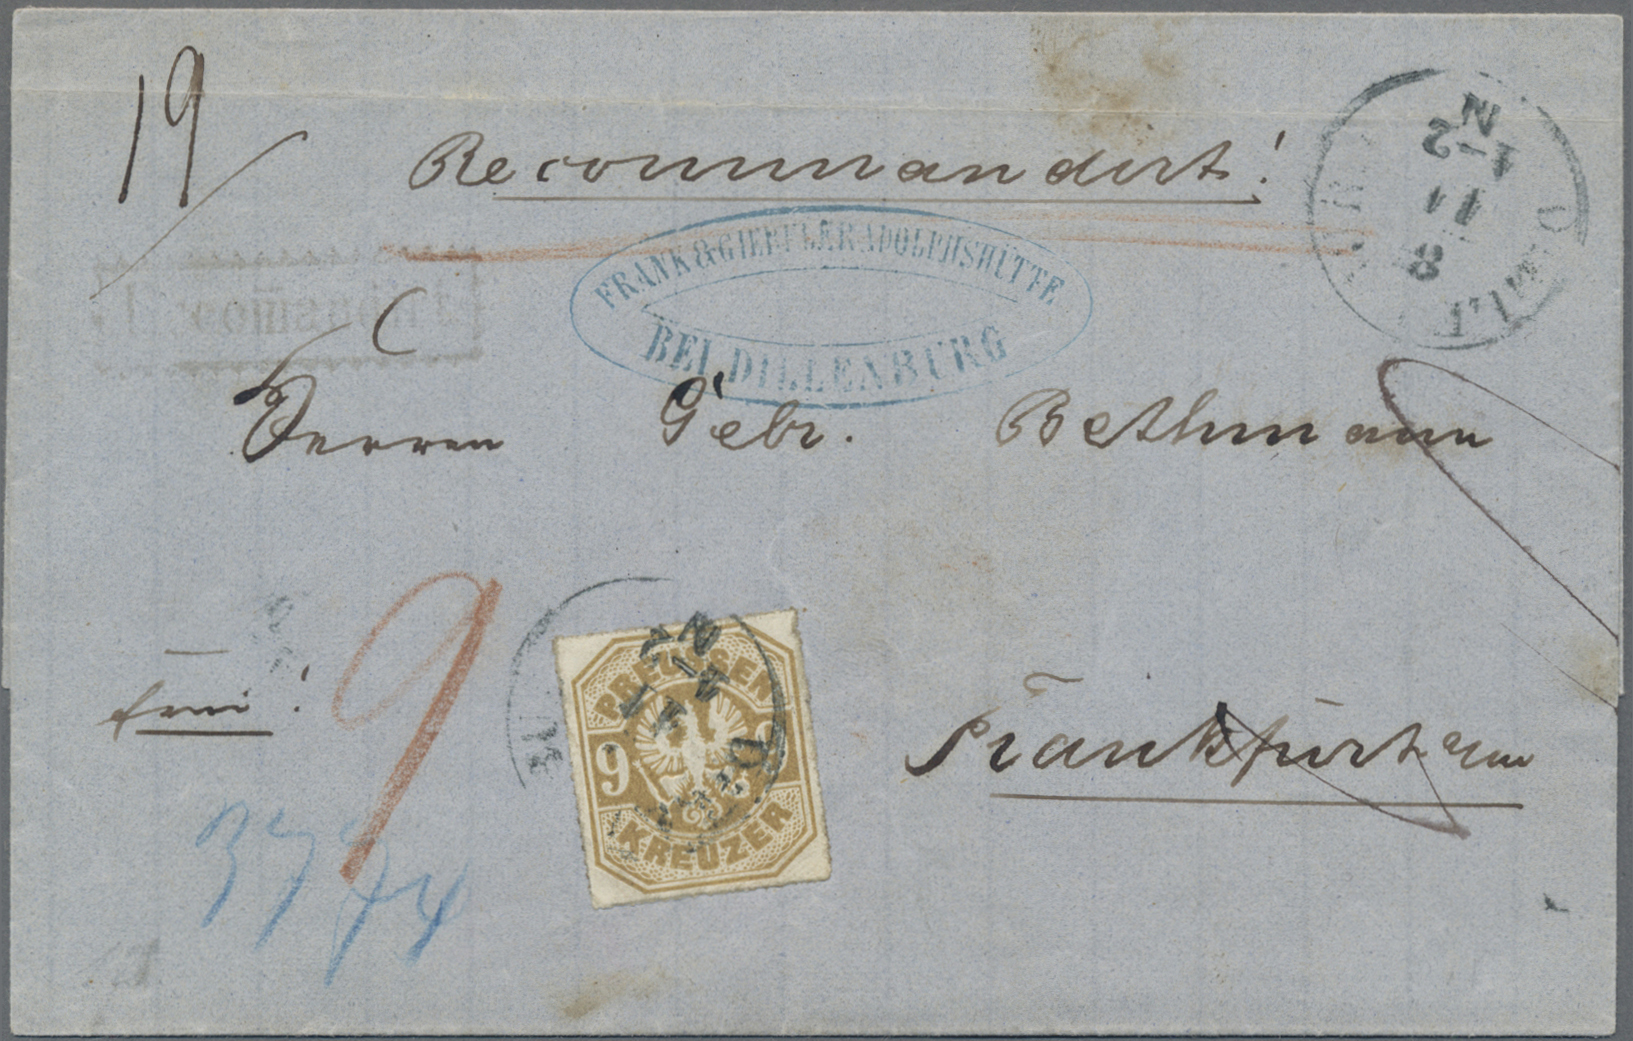 19
Recommandirt!
FRANK & GIEBELER ADOLPHSHÜTTE
BEI DILLENBURG
8
11
1-2
N
Herren Gebr. Bethmann
frei!
9
PREUSSEN
9
KREUZER
Frankfurt a/m